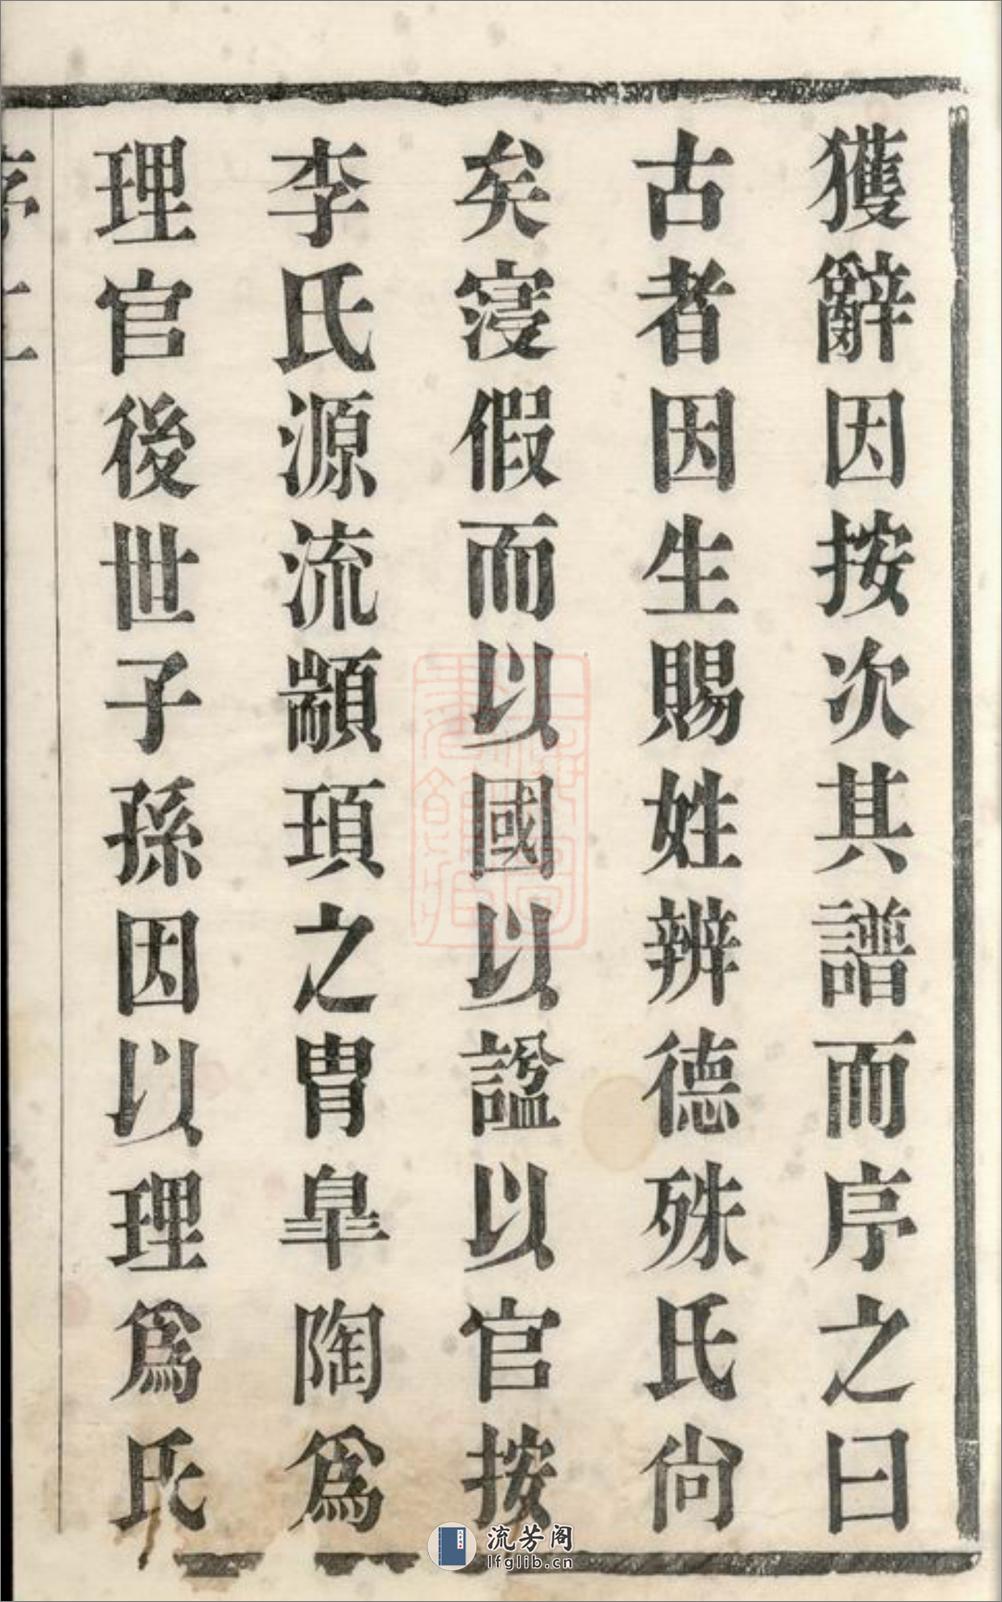 獲辭因按次其譜而序之曰
古者因生賜姓辨德殊氏尙
矣寖假而以國以諡以官按
李氏源流顓頊之胄臯陶爲
理官後世子孫因以理爲氏
流芳阁
lfglib.cn